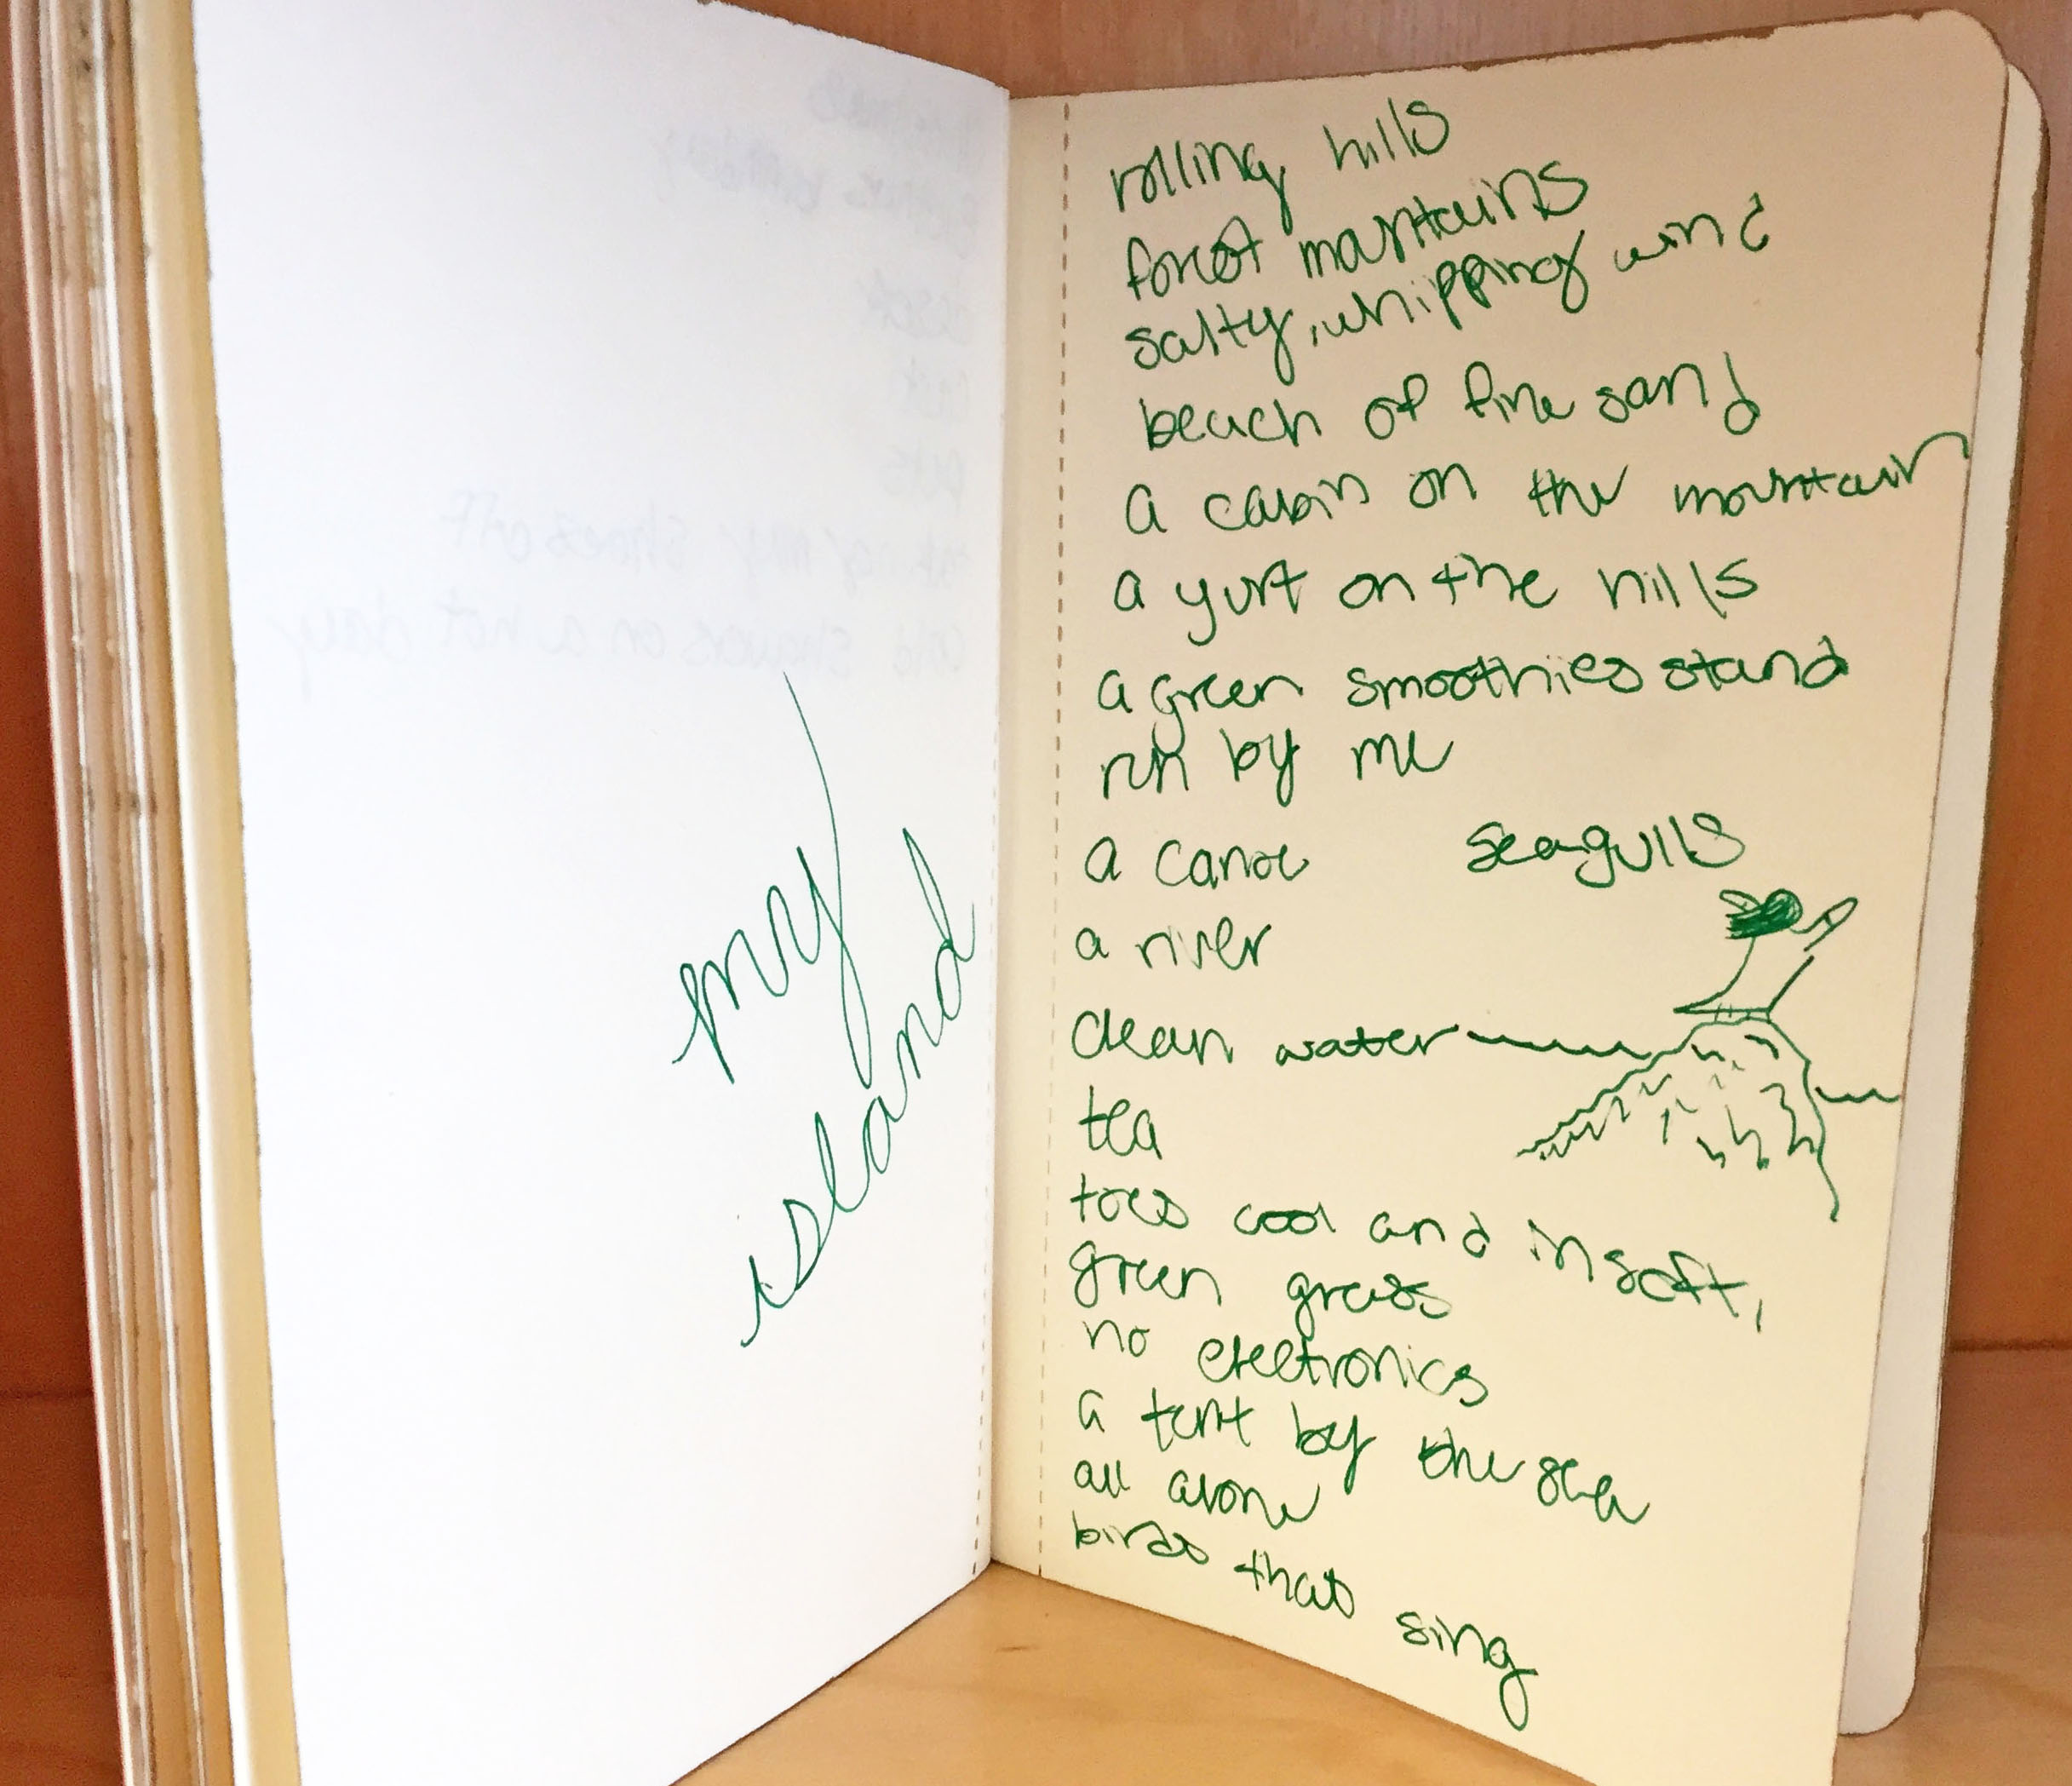 my
island
rolling hills
forest mountains
salty, whipping wind
beach of fine sand
a cabin on the mountain
a yurt on the hills
a green smoothies stand
run by me
a canoe seagulls
a river
clean water
tea
toes cool and in soft,
green grass
no electronics
a tent by the sea
all alone
birds that sing